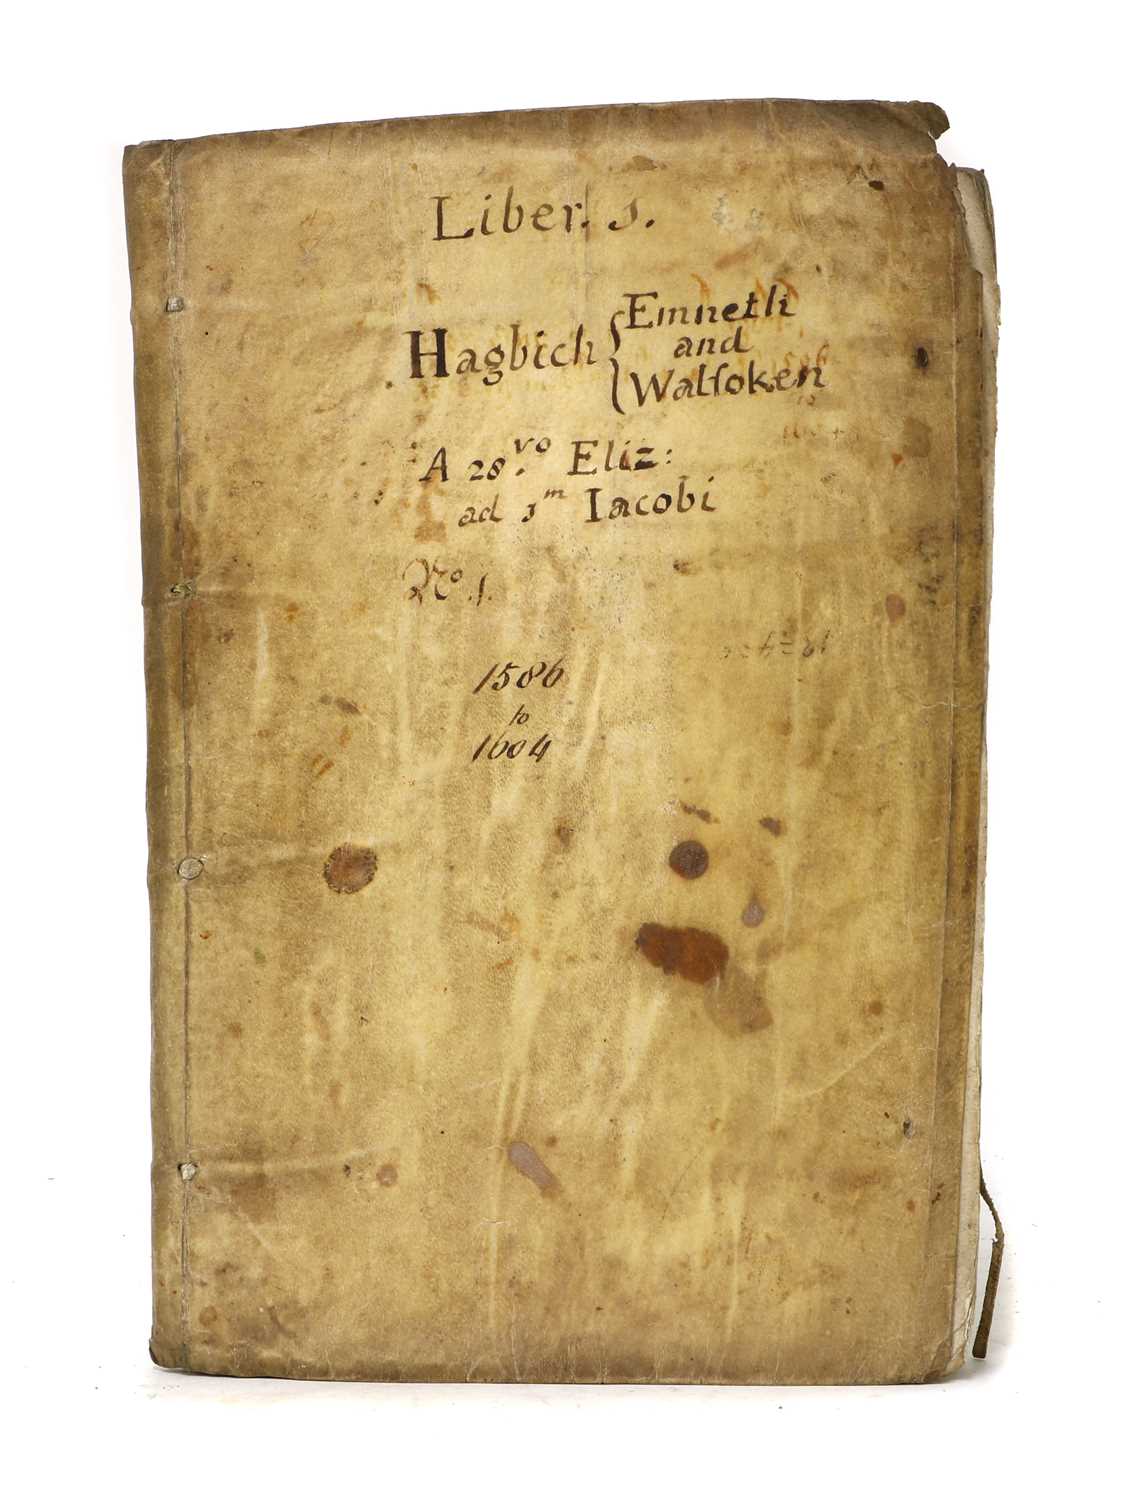 Liber. 1.
Hagbich { Emneth
and
Walsoken
A 28.vo Eliz:
ad 1m Iacobi
No. 1.
1586
to
1604